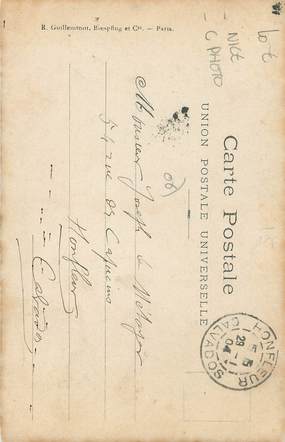 R. Guilleminot, Bœspflug et Cie. — Paris.
Carte Postale
UNION POSTALE UNIVERSELLE
Monsieur Joseph le
54 rue des Capucins
Honfleur
Calvados
HONFLEUR
CALVADOS
04
Lot
NICE
C PHOTO